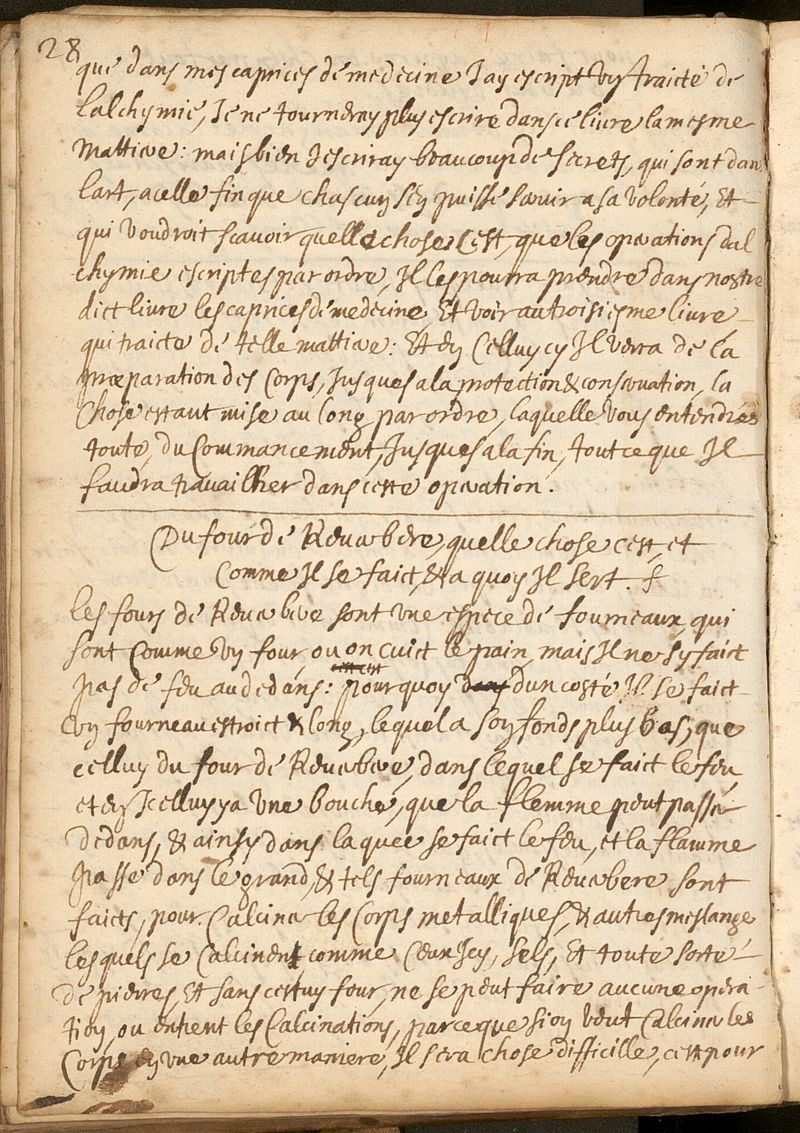 28
que dans mes caprices de medecine J ay escript un traicté de
Lalchymie, Je ne tourneray plus escrire dans ce livre la mesme
Mattiere: mais bien Jescriray beaucoup de secrets, qui sont dan
Lart, a celle fin que chascun s'en puisse servir a sa volonté, Et
qui voudroit scavoir quelle chose c'est, que les operations dal
chymie escriptes par ordre, Il les pourra prendre dans nostre
dict livre les caprices de medecine, Et voir au troisiesme livre
qui traicte de telle mattiere: Et en Celluy cy Il verra de la
præparation des Corps, Jusques a la protection & conservation, la
Chose estant mise au long par ordre, laquelle vous entendres
toute, du Commancement, Jusques a la fin, tout ce que Il
faudra travailher dans ceste operation.
Du four de Reverbere, quelle chose cest, et
Comme Il se faict, & a quoy Il sert.
Les fours de Reverbere sont une espece de fourneaux, qui
sont Comme un four, ou on cuict le pain, mais Il ne sy faict
pas de feu au dedans: pourquoy dun costé Il se faict
un fourneau estroict & long, lequel a son fonds plus bas, que
celluy du four de Reverbere, dans lequel se faict le feu,
et en Icelluy ya une bouche, que la flemme peut passer
dedans, & ainsy dans la quee se faict le feu, et la flamme
passe dans le grand, & tels fourneaux de Reverbere sont
faicts, pour Calciner les Corps metalliques, & autres meslange
lesquels se Calcinent, comme Ceux Icy, Sels, Et toute sorte
de pierres, Et sans cestuy four, ne se peut faire aucune opera-
tion, ou entrent les Calcinations, parce que si on veut Calciner les
Corps en une autre maniere, Il sera chose difficille, cest pour